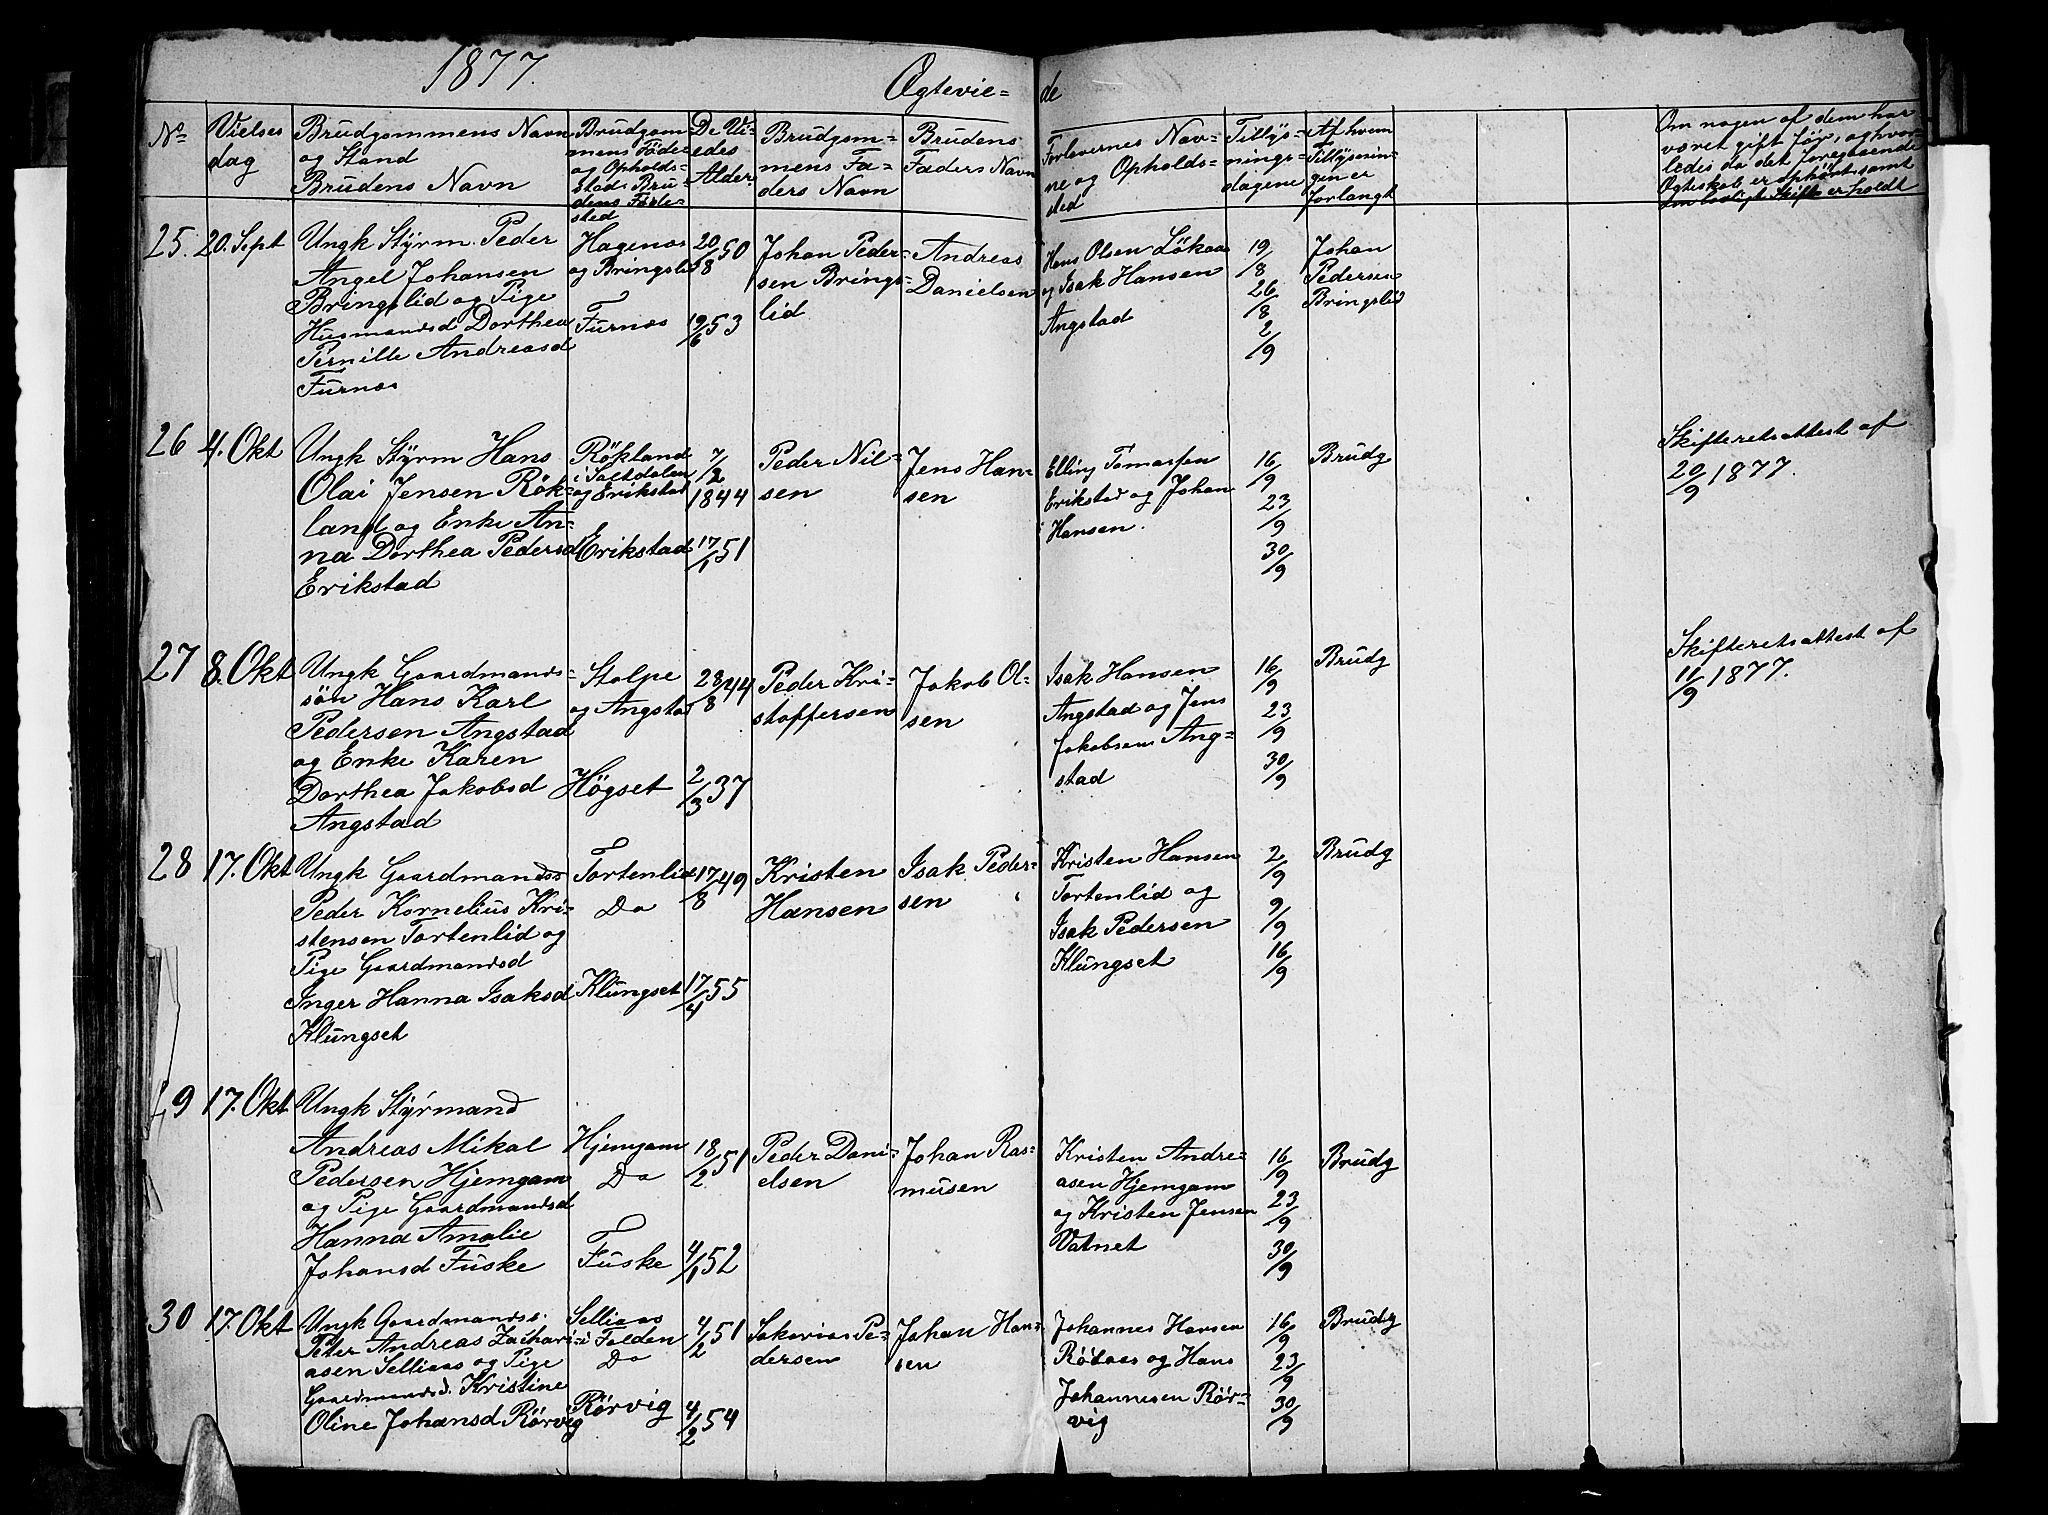 1877.
Ægtevie=
de
No
Vielses
dag
Brudgommens Navn
og Stand
Brudens Navn
Brudgom-
mens Føde-
og Opholds-
sted. Bru-
dens Føde-
sted
De Vi-
edes
Alder.
Brudgom=
mens Fa=
ders Navn
Brudens
Faders Navn
Forlovernes Nav-
ne og Opholds-
sted
Tillys-
nings-
dagene
Af hvem
Tillysnin-
gen er
forlangt
Om nogen af dem har
været gift før, og hvor-
ledes da det foregaaende
Ægteskab er ophørt, samt
om lovligt Skifte er holdt
25.
20. Sept
Ungk Styrm. Peder
Angel Johansen
Bringslid og Pige
Husmandsd Dorthea
Pernille Andreasd
Furnes
Hagenæs
og Bringslid
Furnes
20/8 50
19/6 53
Johan Peder-
sen Brings-
lid
Andreas
Danielsen
Hans Olsen Løkaas
og Isak Hansen
Angstad
19/8
26/8
2/9
Johan
Pedersen
Bringslid
26
4. Okt
Ungk Styrm Hans
Olai Jensen Røk-
land og Enke An-
na Dorthea Pedersd
Erikstad
Røkland
i Saltdalen
og Erikstad
Erikstad
7/2
1844
17/1 51
Peder Nil-
sen
Jens Han-
sen
Elling Tomassen
Erikstad og Johan
Hansen.
16/9
23/9
30/9
Brudg
Skifteretsattest af
20/9 1877.
27
8. Okt
Ungk Gaardmands-
søn Hans Karl
Pedersen Angstad
og Enke Karen
Dorthea Jakobsd
Angstad
Stolpe
og Angstad
Høgset
28/8 44
2/3 37
Peder Kri-
stoffersen
Jakob Ol-
sen
Isak Hansen
Angstad og Jens
Jakobsen Ang-
stad
16/9
23/9
30/9
Brudg
Skifteretsattest af
11/9 1877.
28
17. Okt
Ungk Gaardmandss
Peder Kornelius Kri-
stensen Tortenlid og
Pige Gaardmandsd
Inger Hanna Isaksd
Klungset
Tortenlid
Do
Klungset
17/8 49
17/4 55
Kristen
Hansen
Isak Peder-
sen
Kristen Hansen
Tortenlid og
Isak Pedersen
Klungset
2/9
9/9
16/9
Brudg
29
17. Okt
Ungk Styrmand
Andreas Mikal
Pedersen Hjemgam
og Pige Gaardmandsd
Hanna Amalie
Johansd Fuske
Hjemgam
Do
Fuske
18/2 51
4/1 52
Peder Dani-
elsen
Johan Ras-
musen
Kristen Andre-
asen Hjemgam
og Kristen Jensen
Vatnet
16/9
23/9
30/9
Brudg
30
17. Okt
Ungk Gaardmandss.
Peter Andreas Zachari-
asen Selliaas og Pige
Gaardmandsd. Kristine
Oline Johansd Rørvig
Selliaas
i Folden
Do
Rørvig
4/2 51
4/2 54
Sakarias Pe-
dersen
Johan Han-
sen
Johannes Hansen
Røtaas og Hans
Johannesen Rør-
vig
16/9
23/9
30/9
Brudg